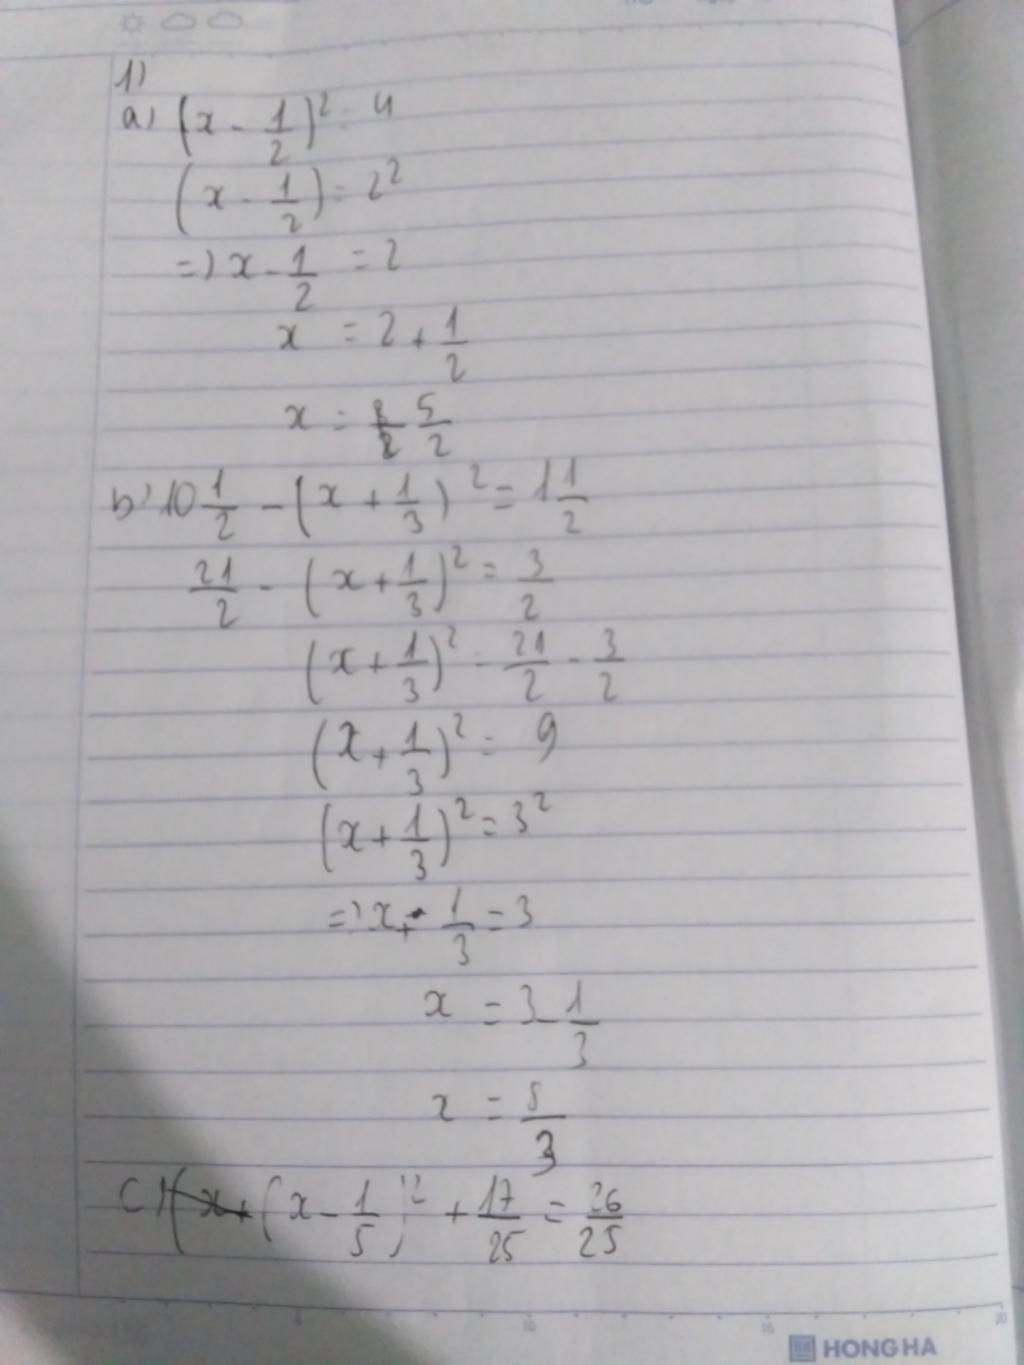 1)
a) (x - 1/2)² = 4
(x - 1/2) = 2²
=> x - 1/2 = 2
x = 2 + 1/2
x = 5/2
b) 10 1/2 - (x + 1/3)² = 1 1/2
21/2 - (x + 1/3)² = 3/2
(x + 1/3)² = 21/2 - 3/2
(x + 1/3)² = 9
(x + 1/3)² = 3²
=> x + 1/3 = 3
x = 3 - 1/3
x = 8/3
c) (x - 1/5)² + 17/25 = 26/25
5 10 15 20
HONG HA